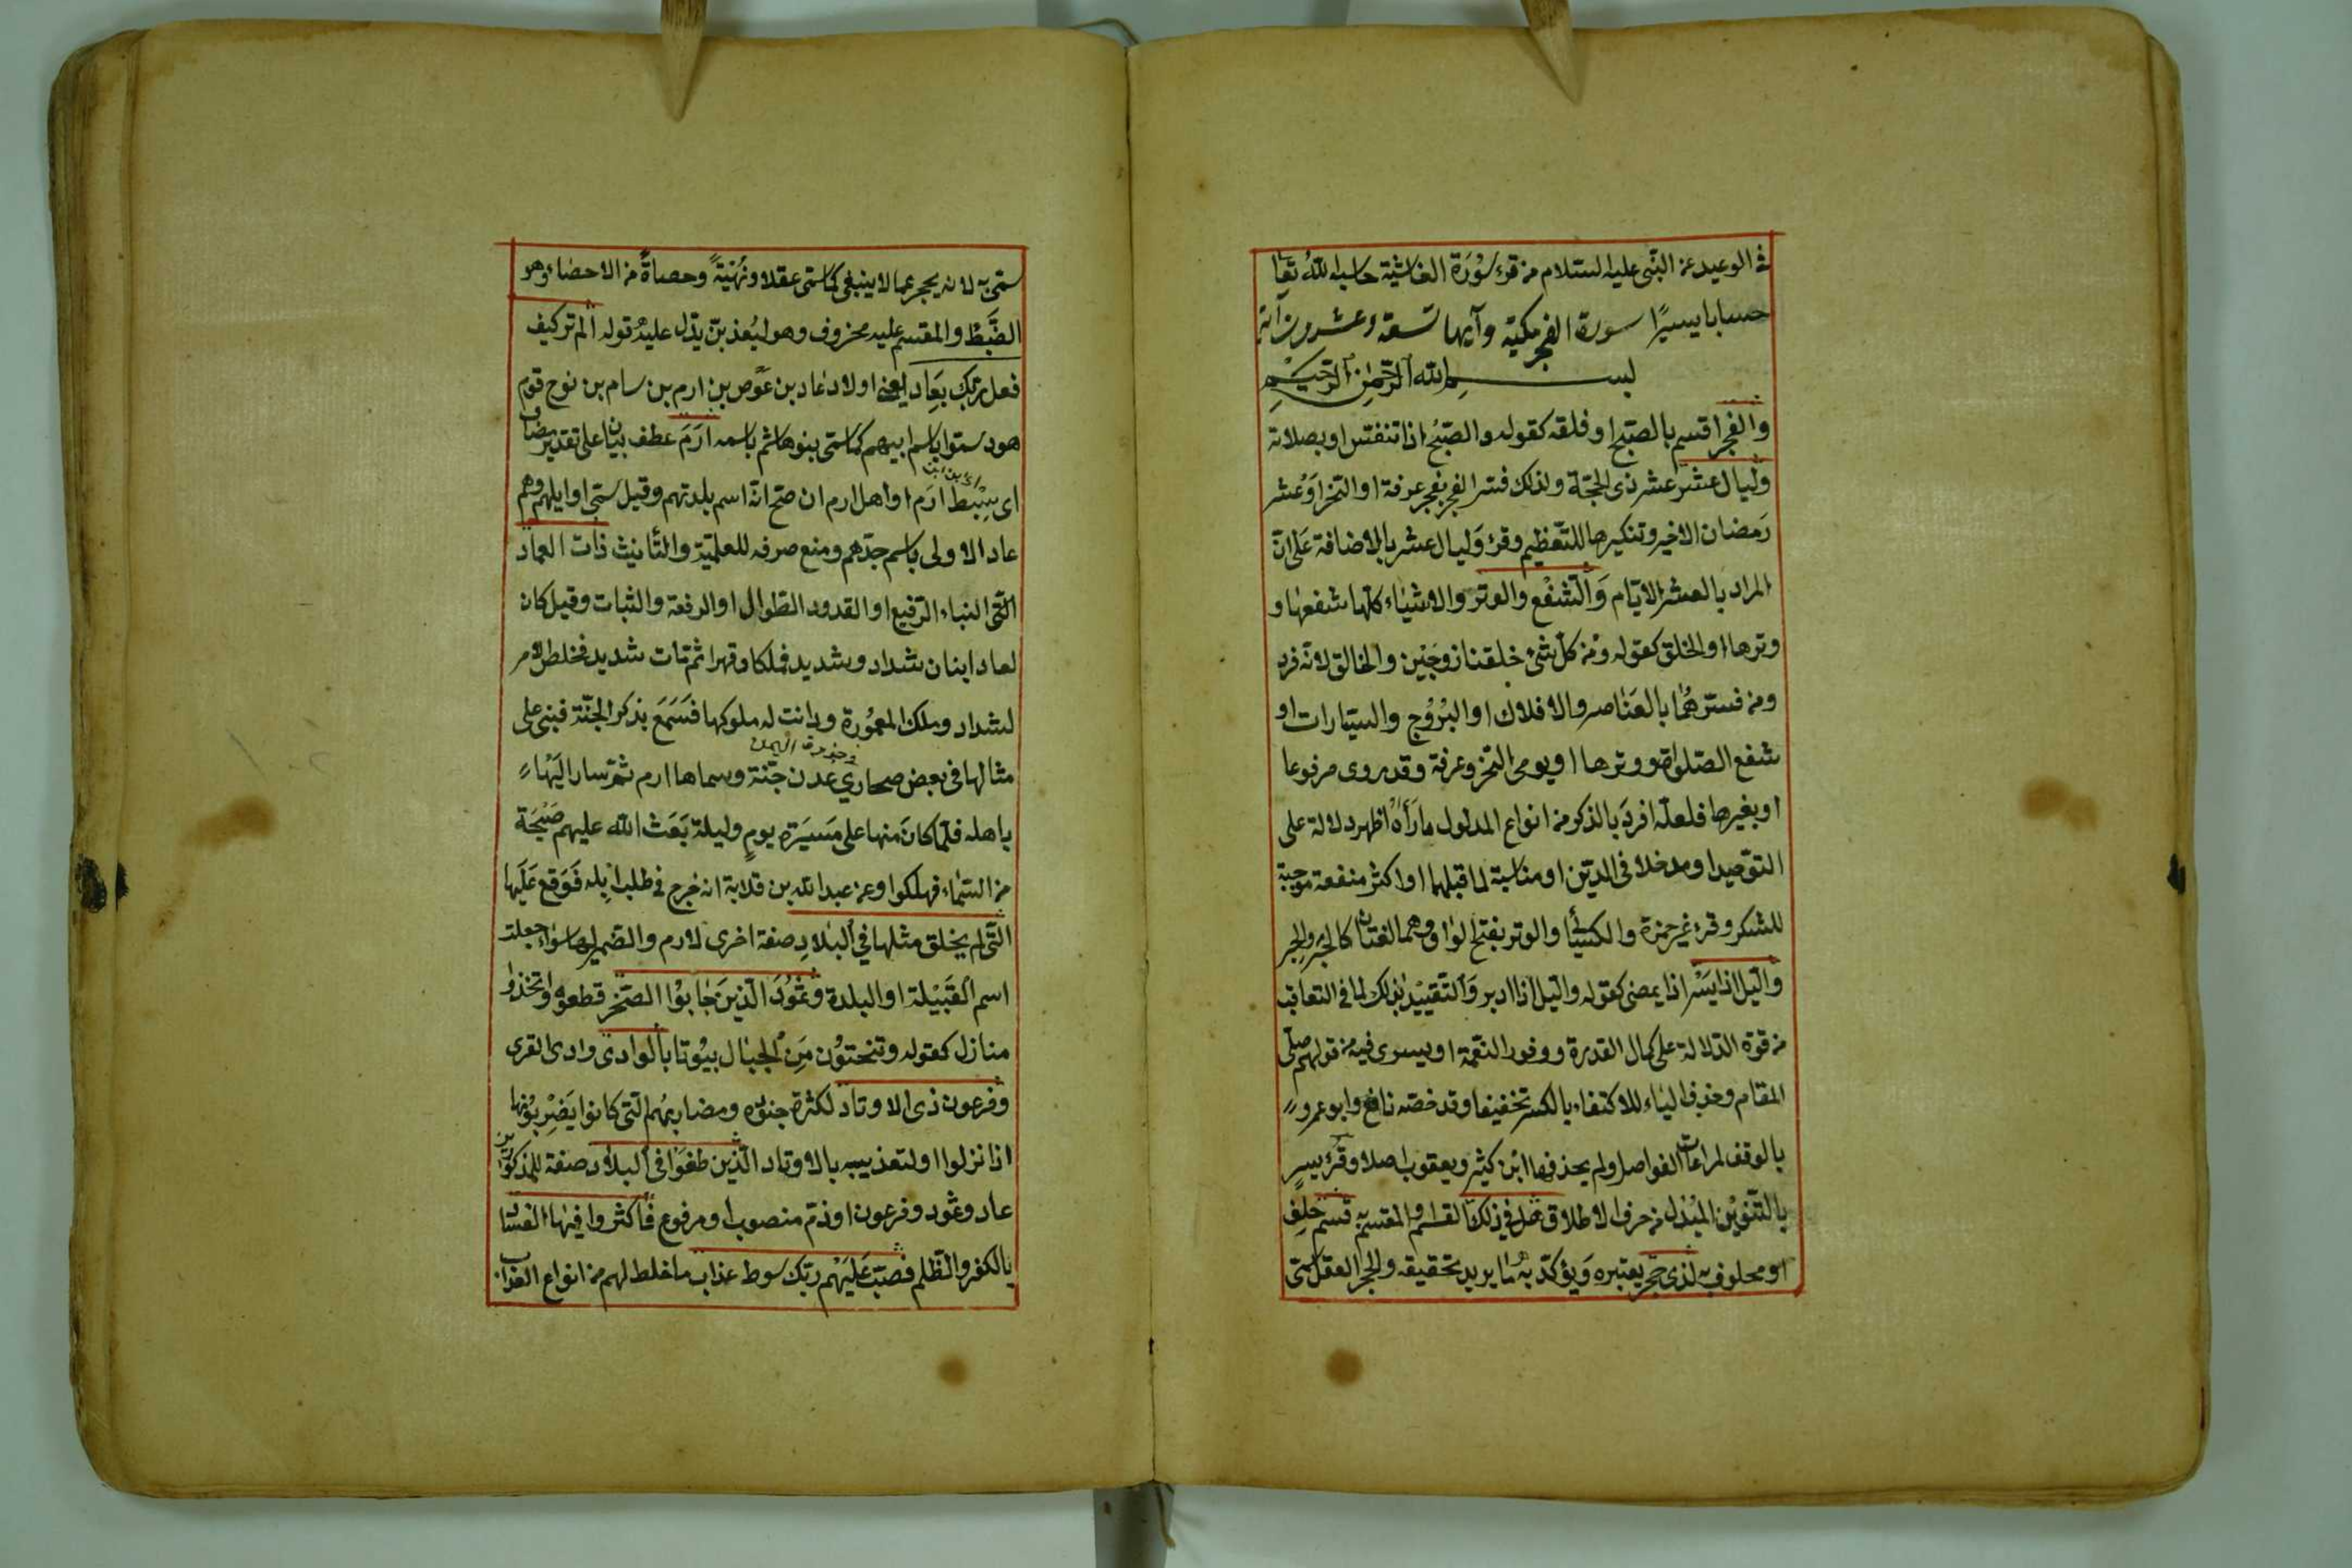 في الوعيد عن النبي عليه السلام من قرء سورة الغاشية حاسبه الله تعا
حسابا يسيرا سورة الفجر مكية وآيها تسعة وعشرون آية
بسم الله الرحمن الرحيم
والفجر اقسم بالصبح او فلقه كقوله والصبح اذا تنفس او بصلاته
وليال عشر عشر ذي الحجة ولذلك فسر الفجر بفجر عرفة او النحر او عشر
رمضان الاخير وتنكيرها للتعظيم وقرئ وليال عشر بالاضافة على ان
المراد بالعشر الايام والشفع والوتر والاشياء كلها شفعها و
وترها او الخلق كقوله ومن كل شئ خلقنا زوجين والخالق لانه فرد
ومن فسرهما بالعناصر والافلاك او البروج والسيارات او
شفع الصلوة ووترها او يومي النحر وعرفة وقد روى مرفوعا
او بغيرها فلعله افرد بالذكر من انواع المدلول ما رآه اظهر دلالة على
التوحيد او مدخلا في الدين او مناسبة لما قبلهما او اكثر منفعة موجبة
للشكر وقرء غير حمزة والكسائي والوتر بفتح الواو وهما لغتان كالحبر والحبر
والليل اذا يسر اذا يمضى كقوله والليل اذا ادبر والتقييد بذلك لما في التعاقب
من قوة الدلالة على كمال القدرة ووفور النعمة او يسرى فيه من قولهم صلى
المقام وحذف الياء للاكتفاء بالكسر تخفيفا وقد خصه نافع وابو عمرو
بالوقف لمراعات الفواصل ولم يحذفها ابن كثير ويعقوب اصلا وقرئ يسر
بالتنوين المبدل من حرف الاطلاق هل في ذلك القسم والمقسم به قسم حلف
او محلوف به لذي حجر يعتبره ويؤكد به ما يريد تحقيقه والحجر العقل سمى
سمى به لانه يحجر عما لا ينبغي كما سمى عقلا ونهية وحصاة من الاحصاء وهو
الضبط والمقسم عليه محذوف وهو ليعذبن يدل عليه قوله الم تر كيف
فعل ربك بعاد يعنى اولاد عاد بن عوص بن ارم بن سام بن نوح قوم
هود سموا باسم ابيهم كما سمى بنو هاشم باسمه ارم عطف بيان على تقدير مضاف
اى سبط ارم او اهل ارم ان صح انه اسم بلدتهم وقيل سمى اوايلهم وهم
عاد الاولى باسم جدهم ومنع صرفه للعلمية والتأنيث ذات العماد
التى البناء الرفيع او القدود الطوال او الرفعة والثبات وقيل كان
لعاد ابنان شداد وشديد فملكا وقهرا ثم مات شديد فخلص الامر
لشداد وملك المعمورة ودانت له ملوكها فسمع بذكر الجنة فبنى على
مثالها في بعض صحاري عدن جنة وسماها ارم ثم سار اليها
باهله فلما كان منها على مسيرة يوم وليلة بعث الله عليهم صيحة
من السماء فهلكوا وعن عبد الله بن قلابة انه خرج في طلب ابله فوقع عليها
التى لم يخلق مثلها في البلاد صفة اخرى لارم والضمير لها سواء جعلت
اسم القبيلة او البلدة وثمود الذين جابوا الصخر قطعوه واتخذوا
منازل كقوله وتنحتون من الجبال بيوتا بالوادى وادى القرى
وفرعون ذى الاوتاد لكثرة جنوده ومضاربهم التى كانوا يضربونها
اذا نزلوا او لتعذيبه بالاوتاد الذين طغوا في البلاد صفة للمذكورين
عاد وثمود وفرعون او ذم منصوب او مرفوع فاكثروا فيها الفساد
بالكفر والظلم فصب عليهم ربك سوط عذاب ما خلط لهم من انواع العذاب